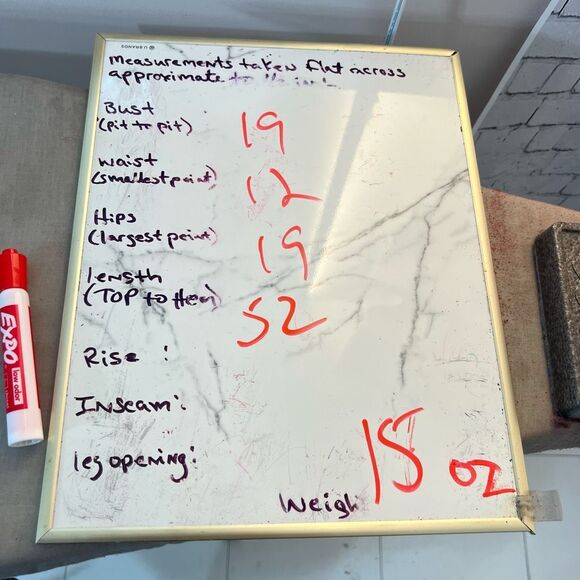 U.BRANDS
measurements taken flat across
approximate
Bust
(pit to pit)
19
waist
(smallest point)
12
Hips
(largest point)
19
length
(TOP to Hem)
52
Rise :
Inseam:
leg opening:
Weigh
oz
EXPO
low odor